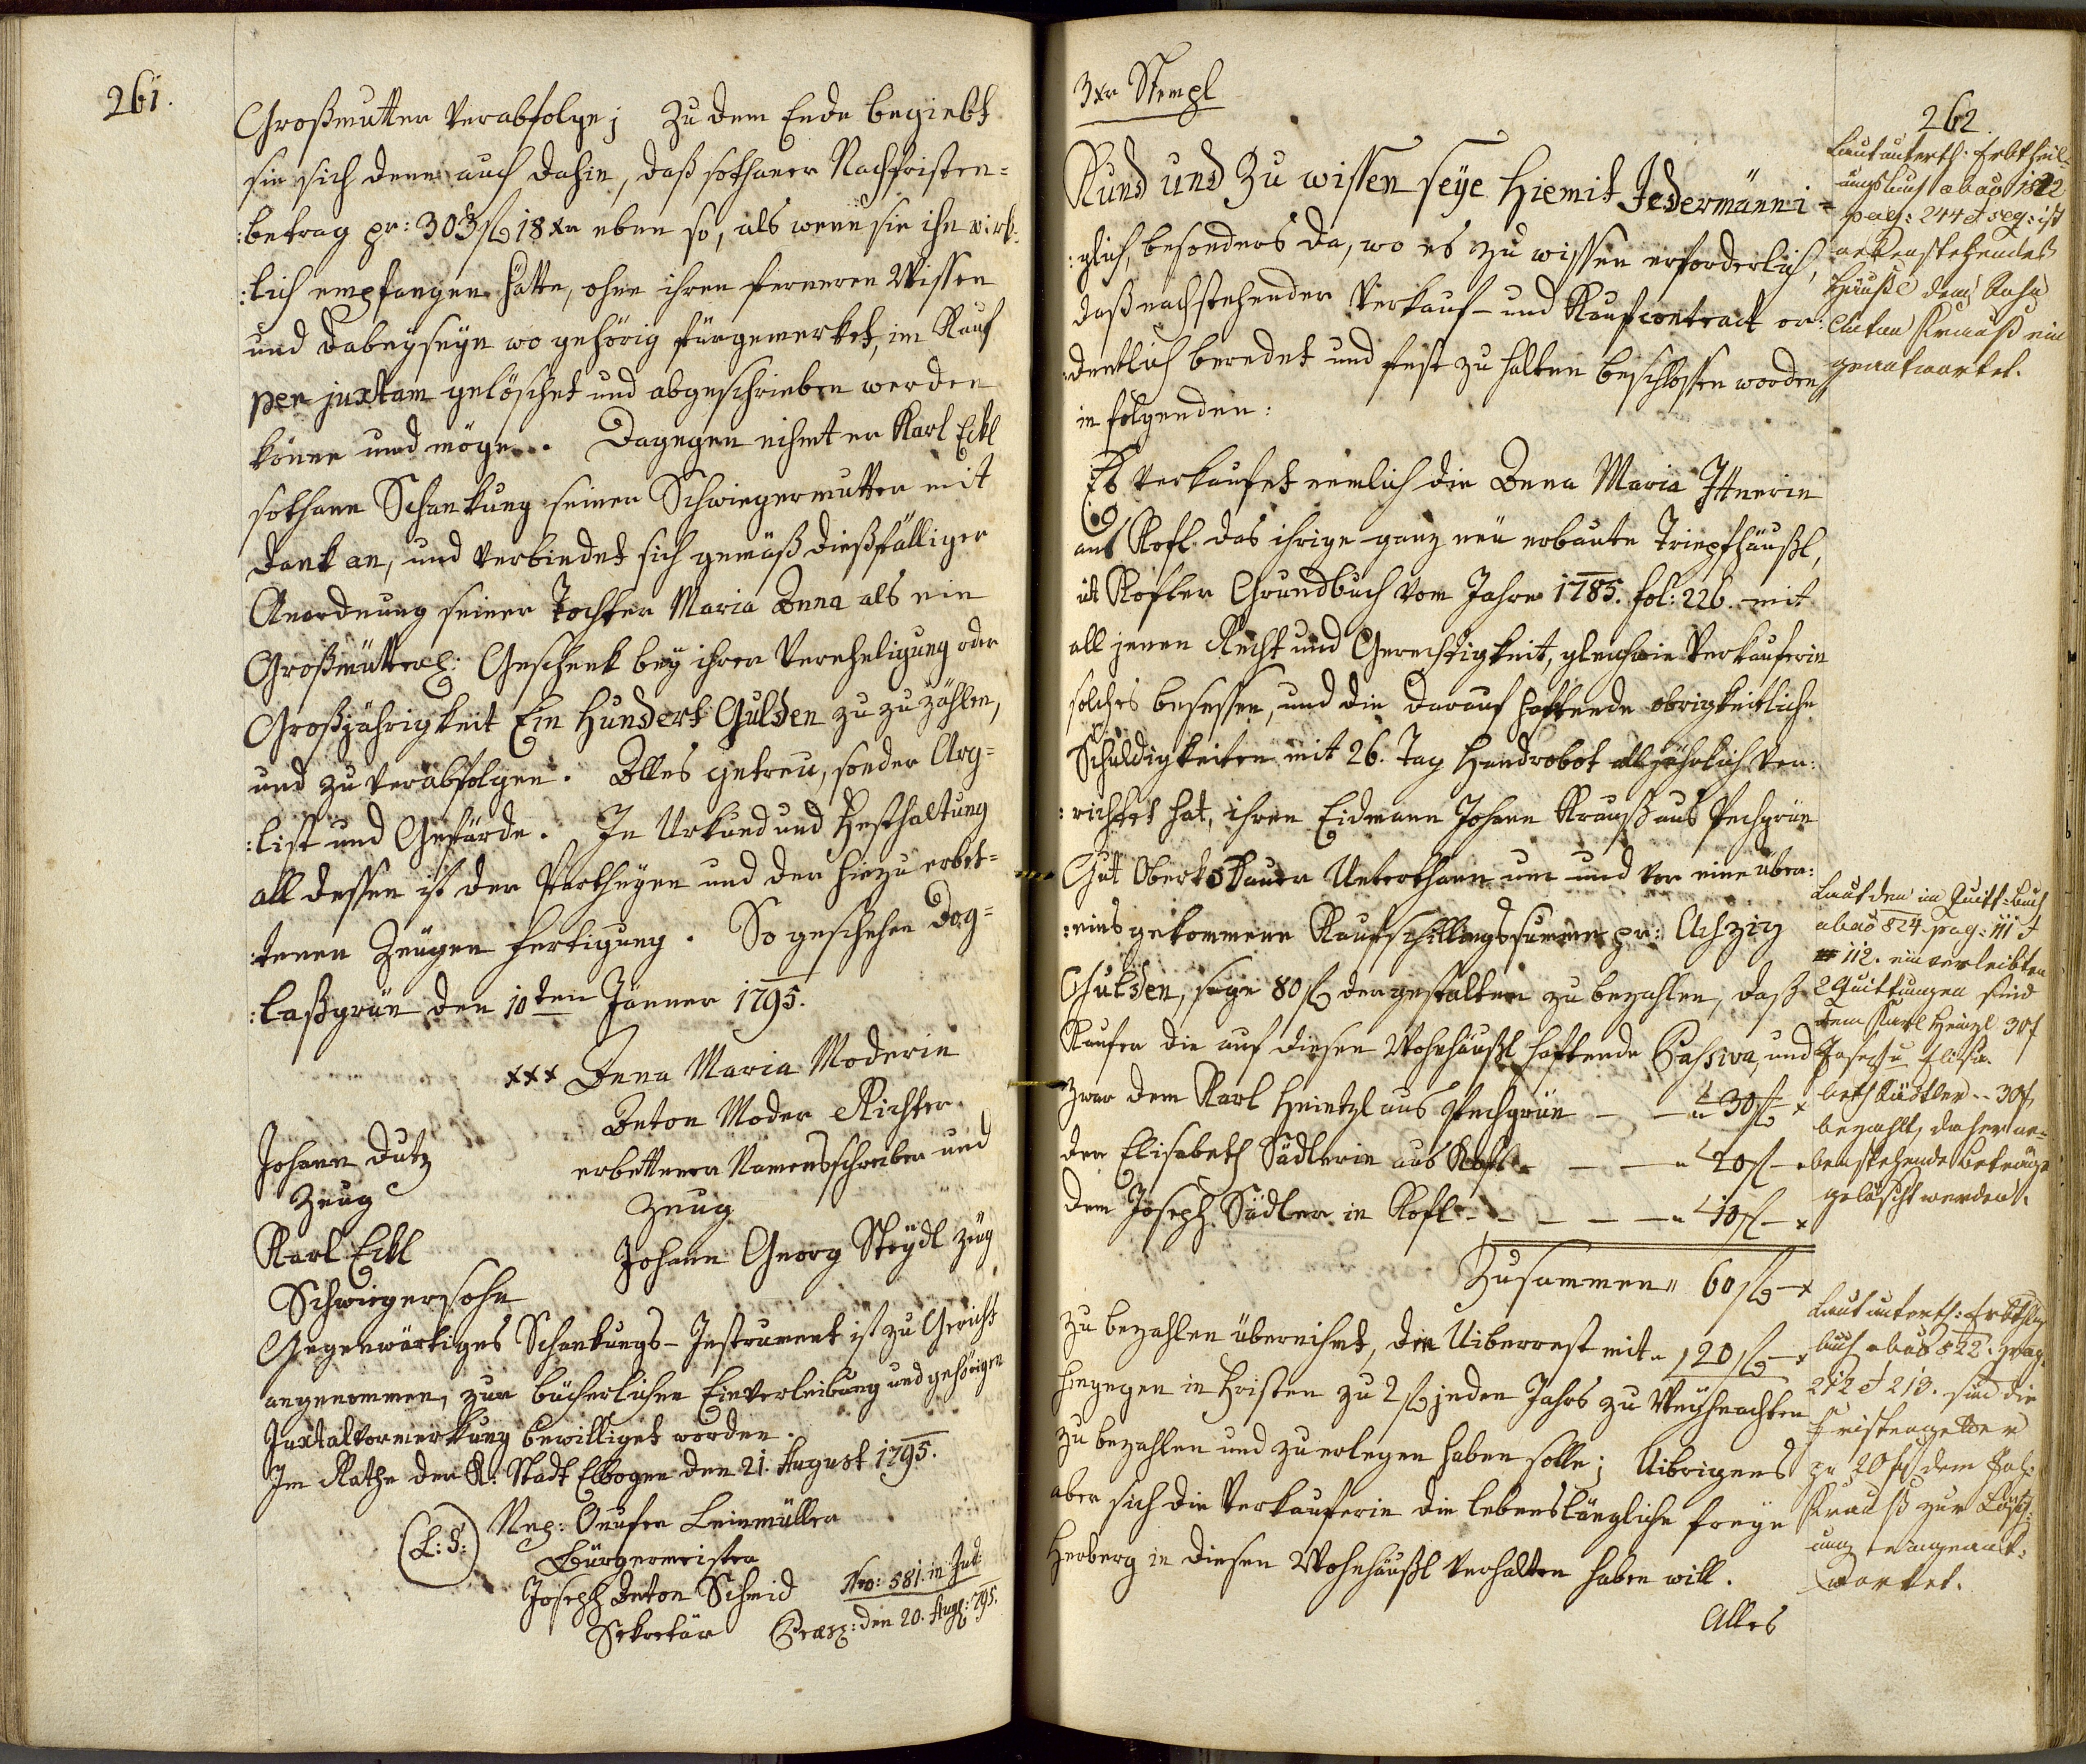 261.
Großmutter verabfolge; Zu dem Ende begiebt
sie sich denn auch dahin, daß sothaner Nachfristen=
:betrag pr: 303 fl 18 xr eben so, als wenn sie ihn wirk:
:lich empfangen hätte, ohne ihren ferneren Wissen
und Dabeyseyn wo gehörig fürgemerket, im Kauf
per juxtam gelöschet und abgeschrieben werden
könne und möge. Dagegen nihmt er Karl Eckl
sothane Schankung seiner Schwiegermutter mit
Dank an, und verbindet sich gemäß dießfälliger
Anordnung seiner Tochter Maria Anna als ein
Großmütterl: Geschenk bey ihrer Vereheligung oder
Großjährigkeit Ein Hundert Gulden zu zu zählen,
und zu verabfolgen. Alles getreu, sonder Arg=
:list und Gefärde. In Urkund und Festhaltung
all dessen ist der Partheyen und der hiezu erbet=
:tenen Zeugen Fertigung. So geschehen Dog=
:laßgrün den 10ten Jänner 1795.
xxx Anna Maria Moderin
Anton Moder Richter
erbettener Namensschreiber und
Zeug
Johann Dutz
Zeug
Karl Eckl
Schwiegersohn
Johann Georg Steydl Zeug
Gegenwärtiges Schankungs-Instrument ist zu Gericht
angenommen, zur bücherlichen Einverleibung und gehörigen
Juxtalvormerkung bewilliget worden.
Im Rathe der K: Stadt Elbogen den 21. August 1795.
(L:S:) Nep: Onufer Leinmüller
Bürgermeister
Joseph Anton Schmid
Sekretär
Nro: 581. in Jud:
Praes: den 20. Augl: 795.
3xr Stempl
262.
Kund und Zu wissen seye hiemit Jedermänni=
:glich, besonders da, wo es zu wissen erforderlich,
daß nachstehender Verkauf- und Kaufcontract or:
:dentlich beredet und fest zu halten beschlossen worden
in folgenden:
Es verkaufet nemlich die Anna Maria Ittnerin
aus Kofl das ihrige ganz neu erbaute Tripfhäußl,
ut Kofler Grundbuch vom Jahre 1785. fol: 226. mit
all jenen Recht und Gerechtigkeit, gleichwie Verkauferin
solches besessen, und die darauf haftende obrigkeitliche
Schuldigkeiten mit 26. Tag Handrobot alljährlich ver:
:richtet hat, ihren Eidmann Johann Krauß aus Pechgrün
Gut Oberkodauer Unterthann um und vor eine über:
:eins gekommene Kaufschillingssumme pr: Achzig
Gulden, sage 80 fl dergestalten zu bezahlen, daß
Kaufer die auf diesen Wohnhäußl haftende Passiva, und
zwar dem Karl Heintzl aus Pechgrün - - " 30 fl - x
der Elisabeth Sädlerin aus Kofl - - - " 20 fl - "
dem Joseph Sädler in Kofl - - - - - " 10 fl - x
Zusammen " 60 fl - x
zu bezahlen übernihmt, den Uiberrest mit " 20 fl - x
hingegen in Fristen zu 2 fl jeden Jahrs zu Weyhnachten
zu bezahlen und zu erlegen haben solle; Uibrigens
aber sich die Verkauferin die lebenslängliche freye
Herberg in diesen Wohnhäußl verhalten haben will.
Alles
Laut unterth. Erbtheil=
ungsbuch ab ao 1822
pag: 244 et seq: ist
nebenstehendes
Häußl dem Sohn
Anton Krauß ein
geantwortet.
Laut den im Quitt:buch
ab ao 824. pag: 111 et
112. einverleibten
2 Quittungen sind
dem Karl Heinzl 30 f
Joseph u Elisa=
beth Sädtler -- 30 f
bezahlt, daher ne=
benstehende Beträge
gelöscht werden.
Laut unterth: Erbthlgs
buch ab ao 822. pag.
212 et 213. sind die
Fristengelder
pr 20 fl dem Joh:
Krauß zur Lösch=
ung eingeant=
wortet.